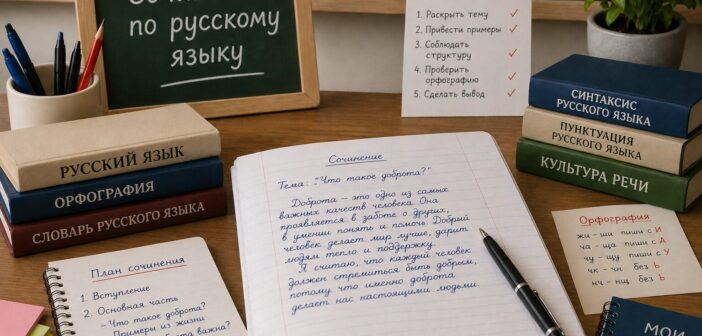 по русскому
языку
1. Раскрыть тему
2. Привести примеры
3. Соблюдать
структуру
4. Проверить
орфографию
5. Сделать вывод
РУССКИЙ ЯЗЫК
ОРФОГРАФИЯ
СЛОВАРЬ РУССКОГО ЯЗЫКА
СИНТАКСИС
РУССКОГО ЯЗЫКА
ПУНКТУАЦИЯ
РУССКОГО ЯЗЫКА
КУЛЬТУРА РЕЧИ
Сочинение
Тема: "Что такое доброта?"
Доброта – это одно из самых
важных качеств человека. Она
проявляется в заботе о других,
в умении понять и помочь. Добрый
человек делает мир лучше, дарит
людям тепло и поддержку.
Я считаю, что каждый человек
должен стремиться быть добрым,
потому что именно доброта
делает нас настоящими людьми.
План сочинения
1. Вступление
2. Основная часть
- Что такое доброта?
Примеры из жизни
важна?
Орфография
жи - ши пиши с И
ча - ща пиши с А
чу - щу пиши с У
чк - чн без Ь
нч - нщ без Ь
МОИ